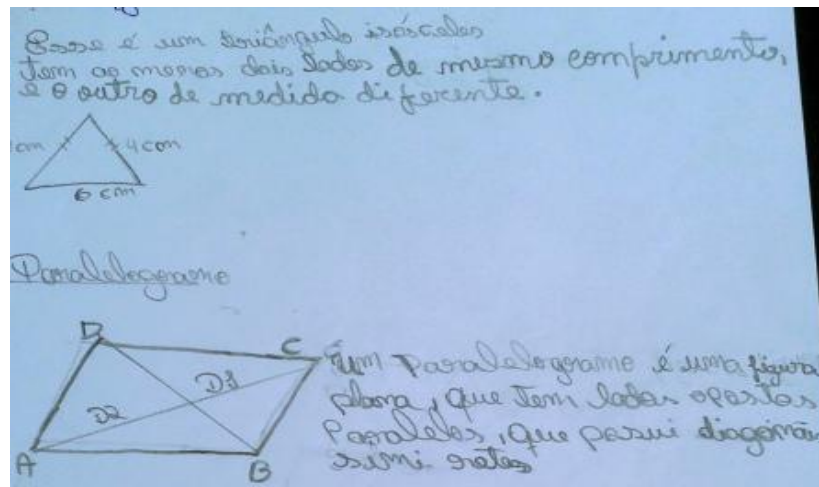 Esse é um triângulo isósceles
Tem ao menos dois lados de mesmo comprimento,
e o outro de medida diferente.
cm 4cm
6 cm
Paralelogramo
D C
D1
D2
A B
um Paralelogramo é uma figura
plana, que tem lados opostos
Paralelos, que possui
simi retas